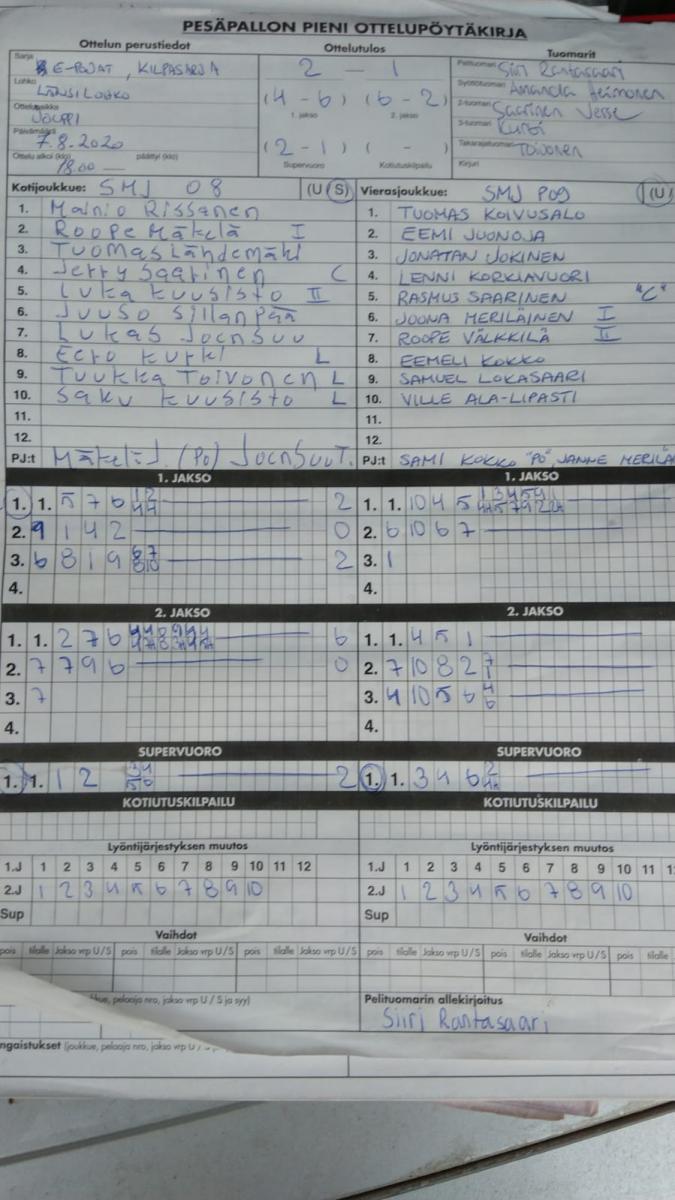 PESÄPALLON PIENI OTTELUPÖYTÄKIRJA
Ottelun perustiedot
Ottelutulos
Tuomarit
Sarja
E-POJAT, KILPASARJA
2 - 1
Pelituomari
Siiri Rantasaari
Lohko
LÄNSILOHKO
(4 - 6) (6 - 2)
Syöttötuomari
Amanda Heimonen
1. jakso
2. jakso
Ottelupaikka
JOUPPI
2-tuomari
Saarinen Jesse
3-tuomari
Kurki
Päivämäärä
7.8.2020
(2 - 1) ( - )
Takarajatuomari
Toivonen
Ottelu alkoi (klo)
18.00
päättyi (klo)
Supervuoro
Kotiutuskilpailu
Kirjuri
Kotijoukkue: SMJ 08 (U S)
1. Mainio Rissanen
2. Roope Mäkelä I
3. Tuomas Lähdemäki
4. Jerry Saarinen C
5. Luka Kuusisto II
6. Juuso Sillanpää
7. Lukas Joensuu
8. Eero Kurki L
9. Tuukka Toivonen L
10. Saku Kuusisto L
11.
12.
PJ:t Mäkelä J. (PO) Joensuu T.
Vierasjoukkue: SMJ P09 (U)
1. TUOMAS KOIVUSALO
2. EEMI JUONOJA
3. JONATAN JOKINEN
4. LENNI KORKIAVUORI
5. RASMUS SAARINEN "C"
6. JOONA MERILÄINEN I
7. ROOPE VÄLKKILÄ II
8. EEMELI KOKKO
9. SAMUEL LOKASAARI
10. VILLE ALA-LIPASTI
11.
12.
PJ:t SAMI KOKKO "PO", JANNE MERILÄ
1. JAKSO
1. 1. 5 7 6 2
2. 9 1 4 2 0
3. 6 8 1 9 6 7 8 10 2
4.
1. JAKSO
1. 1. 10 4 5
2. 6 10 6 7
3. 1
4.
2. JAKSO
1. 1. 2 7 6 6
2. 7 7 9 6 0
3. 7
4.
2. JAKSO
1. 1. 4 5 1
2. 7 10 8 2
3. 4 10 5 6 4 6
4.
SUPERVUORO
1. 1. 1 2 3 4 5 6 2
SUPERVUORO
1. 1. 3 4 6
KOTIUTUSKILPAILU
KOTIUTUSKILPAILU
Lyöntijärjestyksen muutos
1.J 1 2 3 4 5 6 7 8 9 10 11 12
2.J 1 2 3 4 5 6 7 8 9 10
Sup
Lyöntijärjestyksen muutos
1.J 1 2 3 4 5 6 7 8 9 10 11
2.J 1 2 3 4 5 6 7 8 9 10
Sup
Vaihdot
pois tilalle Jakso vrp U/S pois tilalle Jakso vrp U/S pois tilalle Jakso vrp U/S
Vaihdot
pois tilalle Jakso vrp U/S pois tilalle Jakso vrp U/S pois tilalle
pelaaja nro, jakso vrp U / S ja syy)
Pelituomarin allekirjoitus
Siiri Rantasaari
ngaistukset (joukkue, pelaaja nro, jakso vrp U /